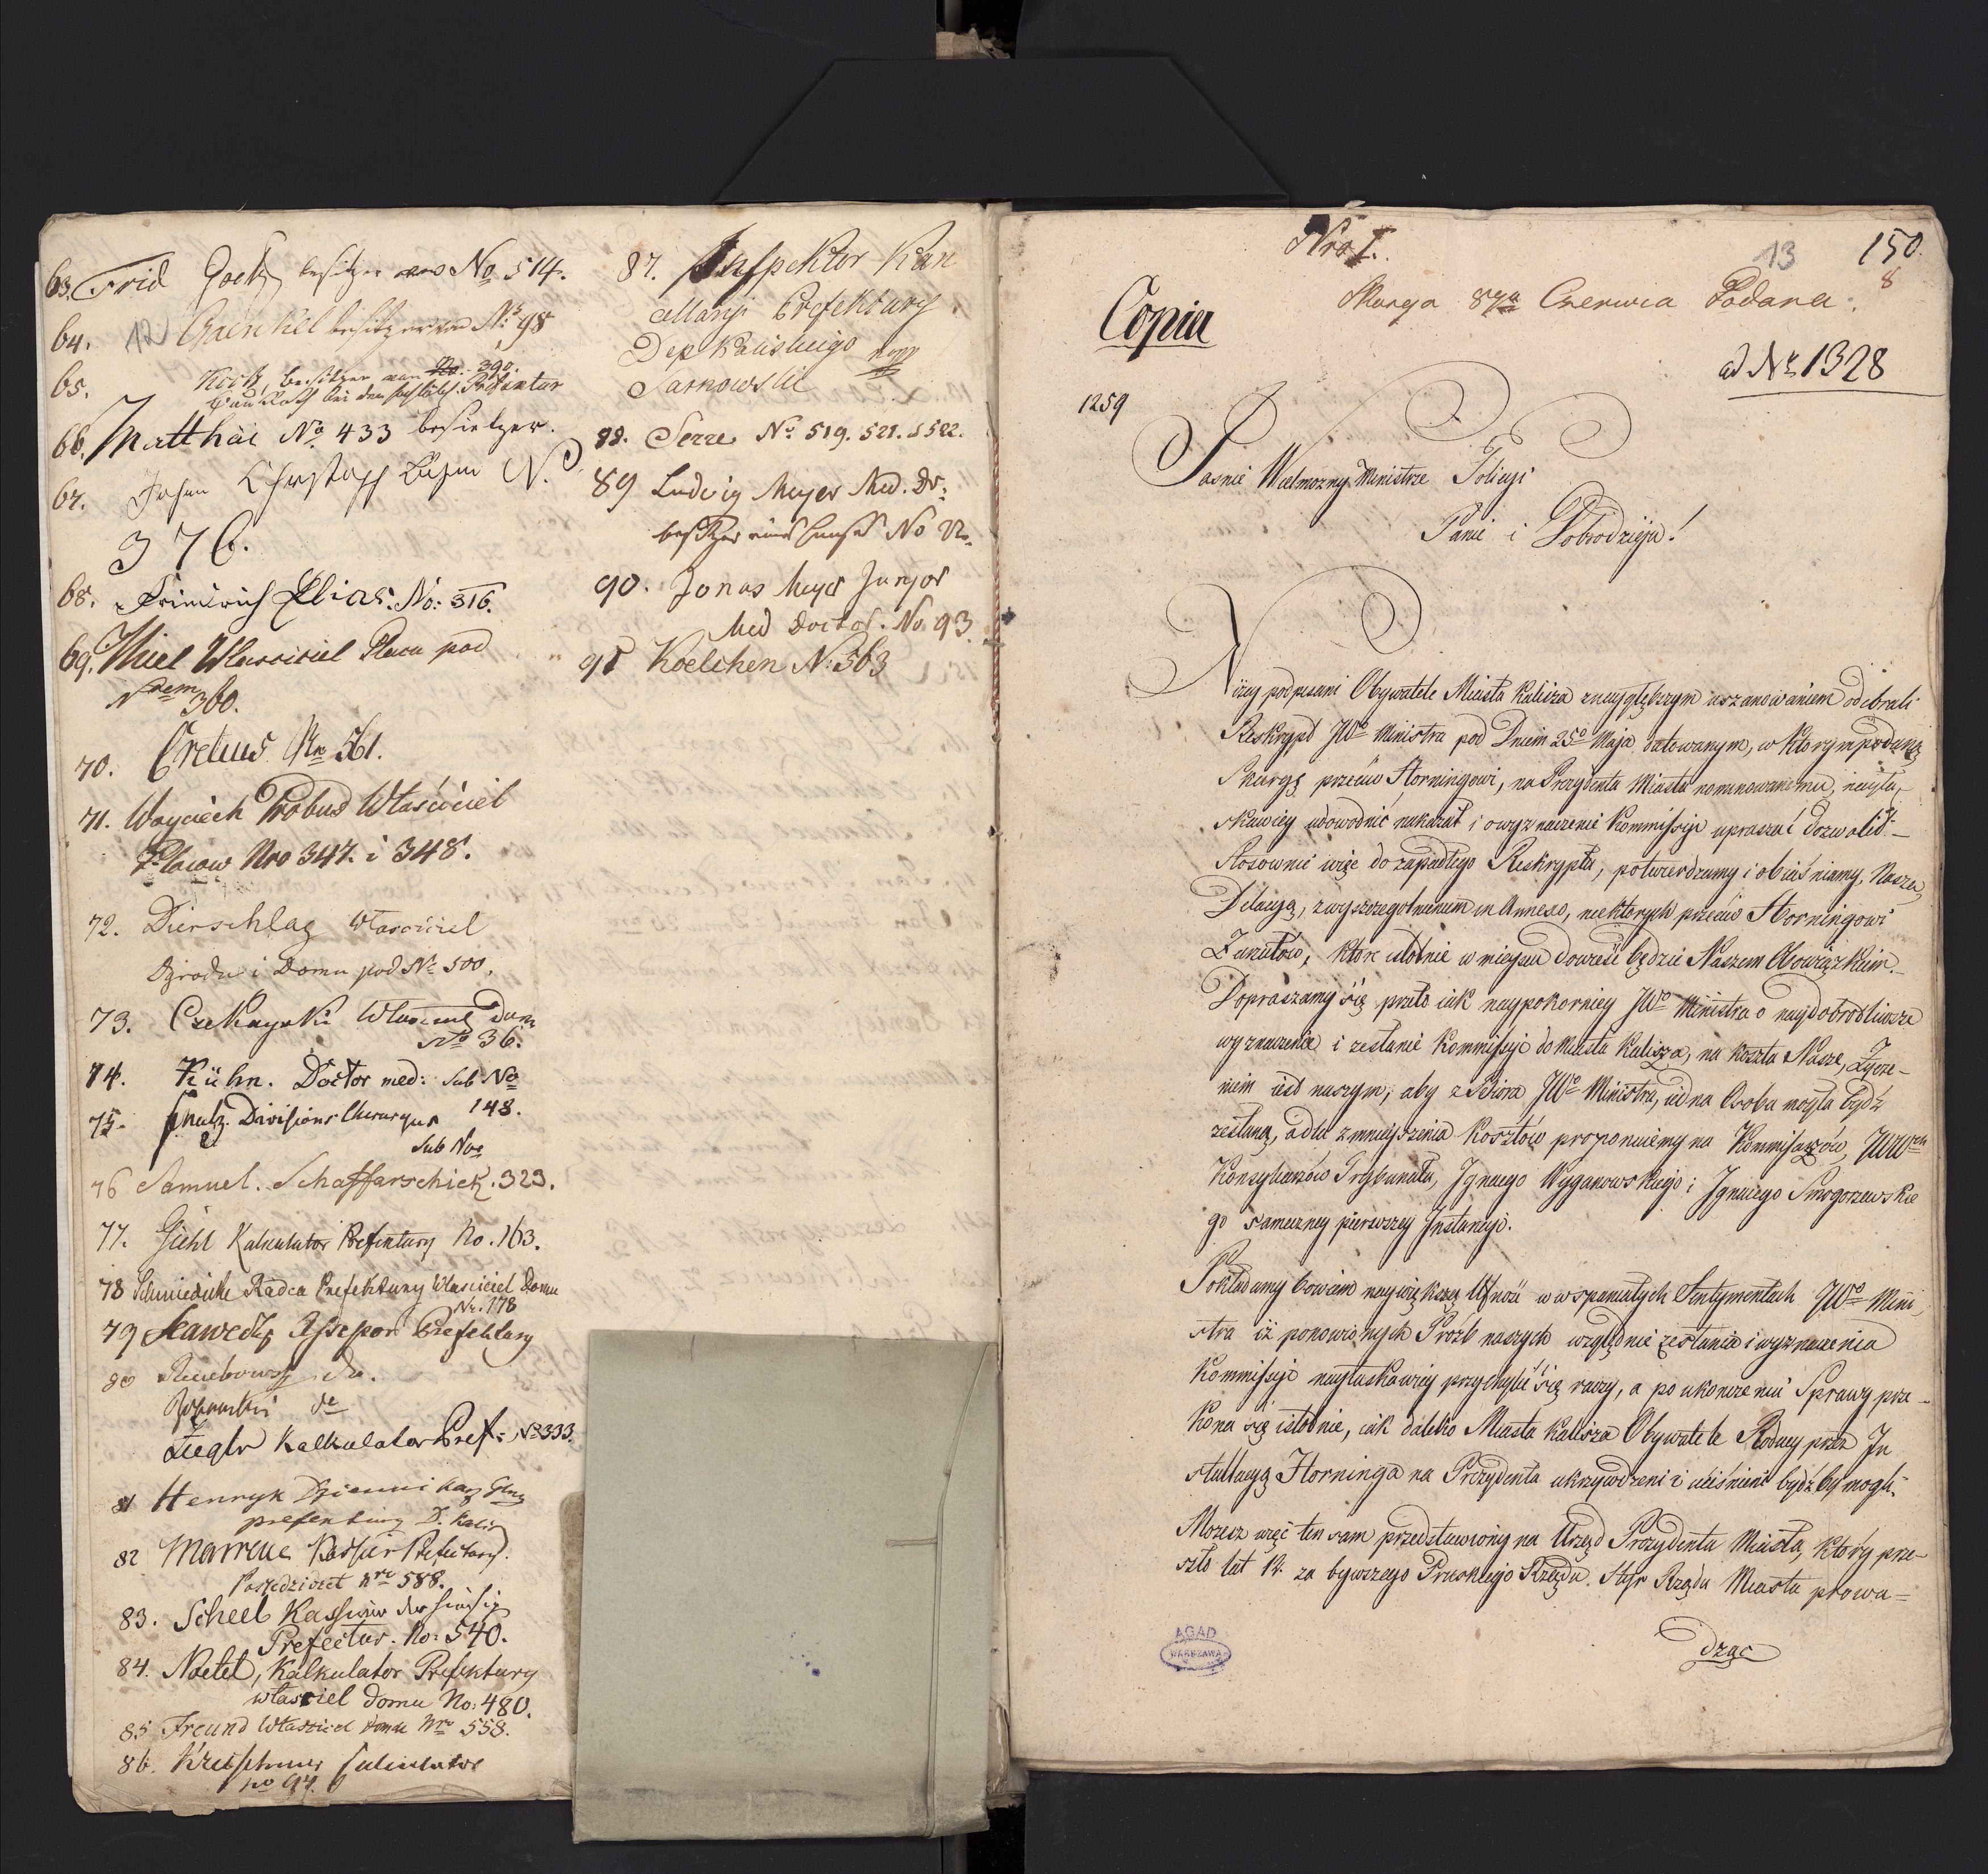 63. Frid Goetz besitzer von No 514.
64. Gaenkel besitzer von No 98
65. Koch, besitzer von No. 390.
bei der Prefektur
66. Matthäi No 433 besietzer.
67. Johan Christoph Böhm N.
376.
68. Friedrich Elias. No: 316.
69. Thiel Własciciel Placu pod
Nrem 360.
70. Cretius Nr 561.
71. Woyciech Probus Właściciel
Placow Nro 347. i 348.
72. Dierschlag właściciel
Ogrodu i Domu pod No 500.
73. Czekayski Własciciel Domu
No 36.
74. Kühn. Doctor med: sub No
148.
75. Divisions Chirurgus
sub Nro
76 Samuel. Schaffarschick. 323.
77. Giehl Kalkulator Prefektury No. 163.
78 Schmiedicke Radca Prefektury Własciciel Domu
Nr. 178
79 Assessor Prefektury
80
Ziegler Kalkulator Pref: No 333.
81 Henryk
prefektury D. Kalis
82 Marrene Kassier Prefektury.
Posiedziciel Nro 588.
83. Scheel Kassirer der hiesig
Prefectur. No: 540.
84. Noetel, Kalkulator Prefektury
własciel domu No. 480.
85 Freund Własciciel domu Nro 558.
86. Kretschmer Calculator
No 97.
87. Inspektor Kan
cellaryi Prefektury
Dep Kaliskiego
Sarnowski
88. Serre No. 519. 521. & 522.
89 Ludwig Meyer Med. Dr:
besitzer eines Hauses No
90. Jonas Meyer Junior
Med Doctor. No 93
91 Koelchen N: 563
Nro I.
13
150.
8
Skarga 87a Czerwca Podana.
Copia
ad Nr 1328
1259
Jasnie Wielmozny Ministrze Policyi
Panie i Dobrodzieju!
Niżey podpisani Obywatele Miasta Kalisza z naygłębszym uszanowaniem odebrali
Reskrypt JWo Ministra pod Dniem 25o Maja datowanym, w ktorym podaną
Skargę przeciw Horningowi, na Prezydenta Miasta nominowanemu, nayła-
skawiey udowodnić nakazał i o wyznaczenie Kommissyi upraszać dozwolił.
Stosownie więc do zapadłego Reskryptu, potwierdzamy i obiaśniamy, Naszą
Delacyą, z wyszczegolnieniem in Annexo, niektorych przeciw Horningowi
Zarzutów, ktore istotnie w mieyscu dowieść będzie Naszem Obowiązkiem.
Dopraszamy się przeto iak naypokorniey JWo Ministra o naydobrotliwsze
wyznaczenie i zesłanie Kommissyi do Miasta Kalisza, na koszta Nasze, Zycze-
niem iest naszym, aby z Biora JWo Ministra, iedna Osoba mogła bydź
zesłaną, a dla zmnieyszenia kosztów proponuiemy na Kommissarzów, JWWch
Konsyliarzów Trybunału, Ignacego Wyganowskiego i Ignacego Smogorzewskie
go tameczney pierwszey Instancyi.
Pokładamy bowiem naywiększą Ufność w wspaniałych Sentymentach JWo Mini-
stra iż ponowionych Proźb naszych względnie zesłania i wyznaczenia
Kommissyi nayłaskawiey przychylić się raczy, a po ukonczeniu Sprawy prze-
kona się istotnie, iak daleko Miasta Kalisza Obywatele Rodacy przez In
stallacyą Horninga na Prezydenta ukrzywdzeni i uciśnieni bydź by mogli.
Mozesz więc ten sam przedstawiony na Urząd Prezydenta Miasta, ktory prze-
szło lat 12. za bywszego Pruskiego Rządu. Styr Rządu Miasta prowa-
dząc
AGAD
WARSZAWA